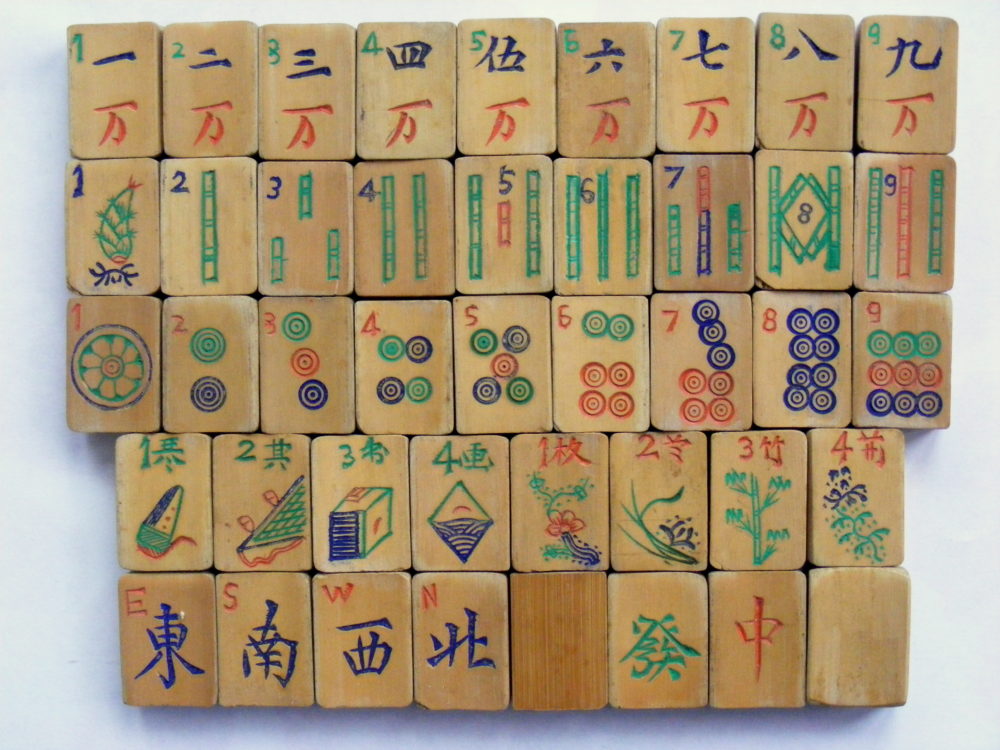 1 一 2 二 3 三 4 四 5 伍 6 六 7 七 8 八 9 九
万 万 万 万 万 万 万 万 万
1 2 3 4 5 6 7 8 9
1 2 3 4 5 6 7 8 9
1 2 3 书 4 画 1 2 3 竹 4
E S W N
東 南 西 北 發 中